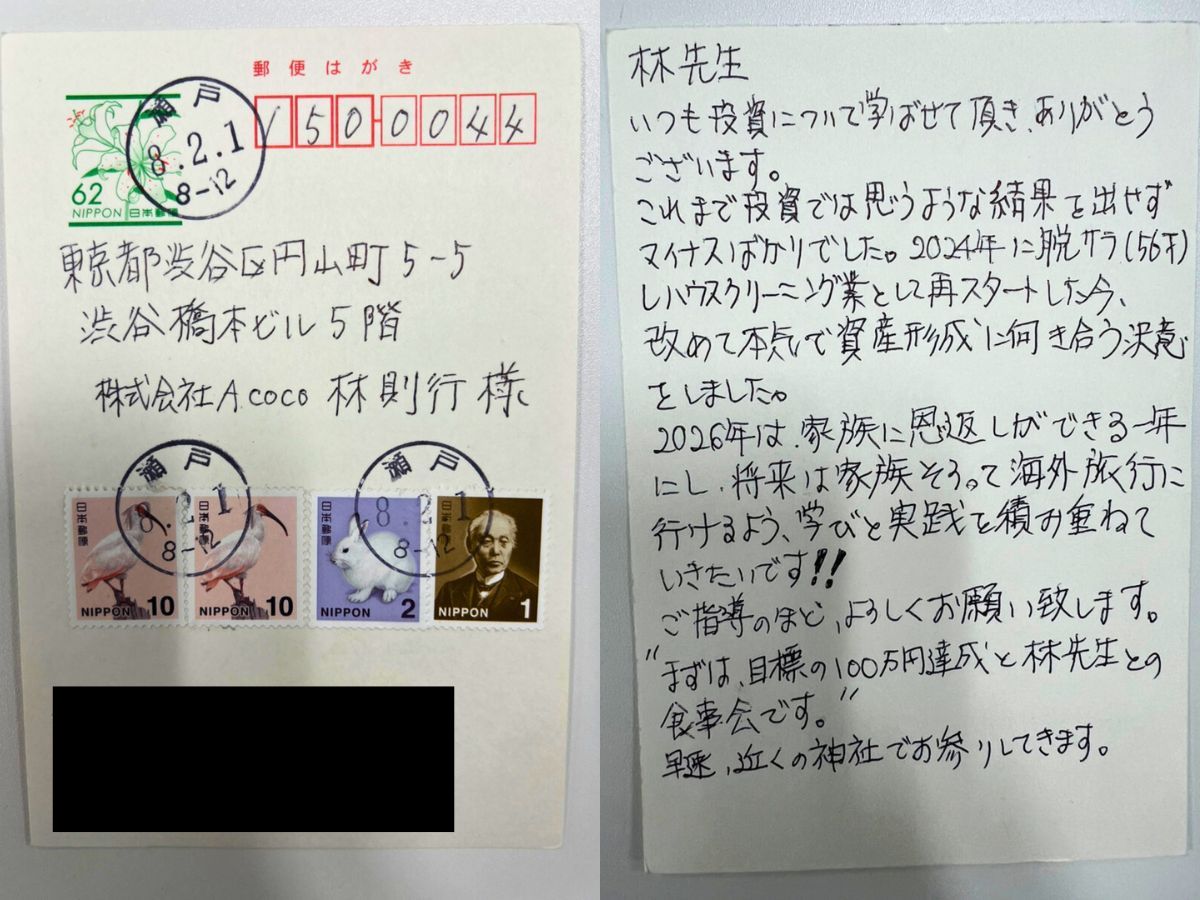 郵便はがき
150-0044
瀬戸
8.2.1
8-12
62
NIPPON 日本郵便
東京都渋谷区円山町5-5
渋谷橋本ビル5階
株式会社A.coco 林則行様
瀬戸
8.2.1
8-12
瀬戸
8.2.1
8-12
日本郵便
NIPPON 10
日本郵便
NIPPON 10
日本郵便
NIPPON 2
日本郵便
NIPPON 1
林先生
いつも投資について学ばせて頂き、ありがとう
ございます。
これまで投資では思うような結果を出せず
マイナスばかりでした。2024年に脱サラ(56才)
しハウスクリーニング業として再スタートした今、
改めて本気で資産形成に向き合う決意
をしました。
2026年は、家族に恩返しができる一年
にし、将来は家族そろって海外旅行に
行けるよう、学びと実践を積み重ねて
いきたいです!!
ご指導のほど、よろしくお願い致します。
"まずは、目標の100万円達成と林先生との
食事会です。"
早速、近くの神社でお参りしてきます。